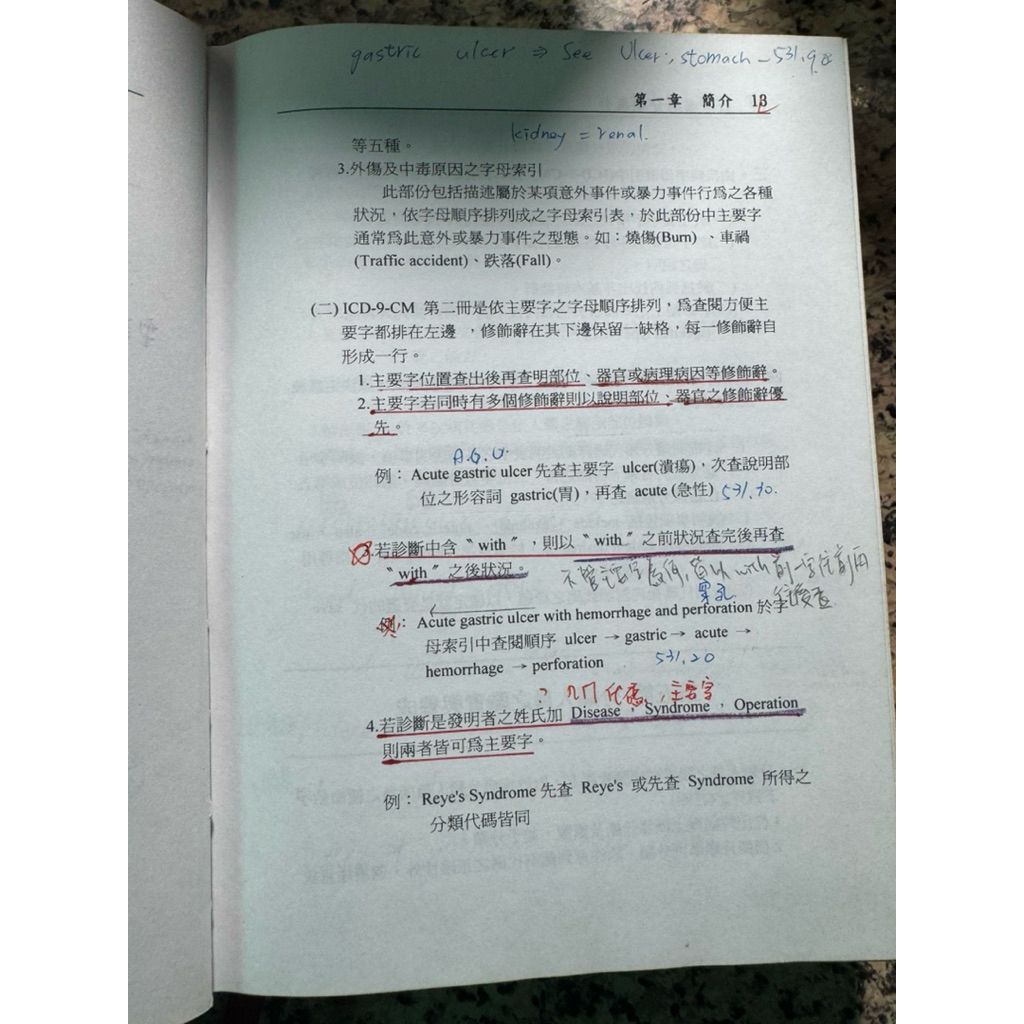 gastric ulcer ⇒ See Ulcer, stomach - 531.9
第一章 簡介 13
kidney = renal.
等五種。
3.外傷及中毒原因之字母索引
此部份包括描述屬於某項意外事件或暴力事件行爲之各種
狀況，依字母順序排列成之字母索引表，於此部份中主要字
通常爲此意外或暴力事件之型態。如：燒傷(Burn) 、車禍
(Traffic accident)、跌落(Fall)。
(二) ICD-9-CM 第二冊是依主要字之字母順序排列，爲查閱方便主
要字都排在左邊 ，修飾辭在其下邊保留一缺格，每一修飾辭自
形成一行。
1.主要字位置查出後再查明部位、器官或病理病因等修飾辭。
2.主要字若同時有多個修飾辭則以說明部位、器官之修飾辭優
先。
A.G.U.
例： Acute gastric ulcer先查主要字 ulcer(潰瘍)，次查說明部
位之形容詞 gastric(胃)，再查 acute (急性) 531.30.
3.若診斷中含〝with〞，則以〝with〞之前狀況查完後再查
〝with〞之後狀況。
穿孔
例： Acute gastric ulcer with hemorrhage and perforation 於字
母索引中查閱順序 ulcer → gastric → acute →
hemorrhage → perforation 531.20
? 代碼 主要字
4.若診斷是發明者之姓氏加 Disease ，Syndrome ，Operation
則兩者皆可爲主要字。
例： Reye's Syndrome 先查 Reye's 或先查 Syndrome 所得之
分類代碼皆同